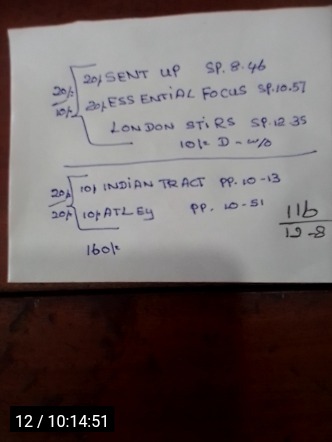 20/- SENT UP SP. 8.46
20/- 10/- 20/- ESSENTIAL FOCUS SP.10.57
LONDON STIRS SP.12.35
10/- D - W/O
20/- 20/- 10/- INDIAN TRACT PP. 10-13
10/- ATLEY PP. 10-51
116
12-8
160/-
12 / 10:14:51